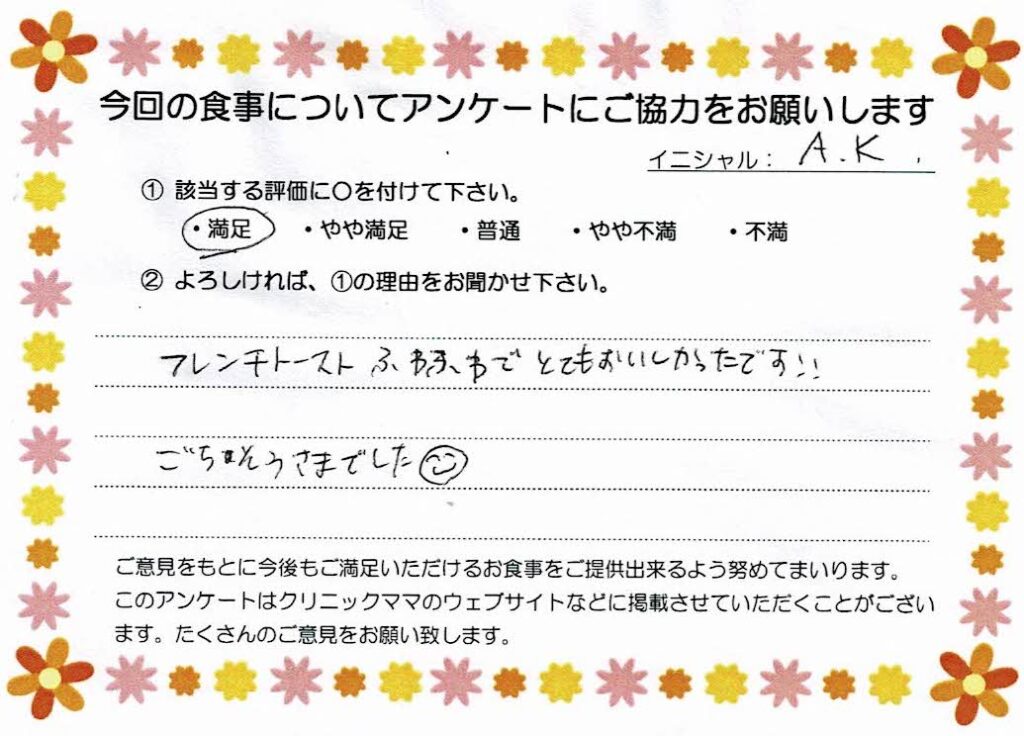 今回の食事についてアンケートにご協力をお願いします
イニシャル： A.K.
① 該当する評価に〇を付けて下さい。
・満足 ・やや満足 ・普通 ・やや不満 ・不満
② よろしければ、①の理由をお聞かせ下さい。
フレンチトースト ふわふわで とてもおいしかったです!!
ごちそうさまでした
ご意見をもとに今後もご満足いただけるお食事をご提供出来るよう努めてまいります。
このアンケートはクリニックママのウェブサイトなどに掲載させていただくことがござい
ます。たくさんのご意見をお願い致します。